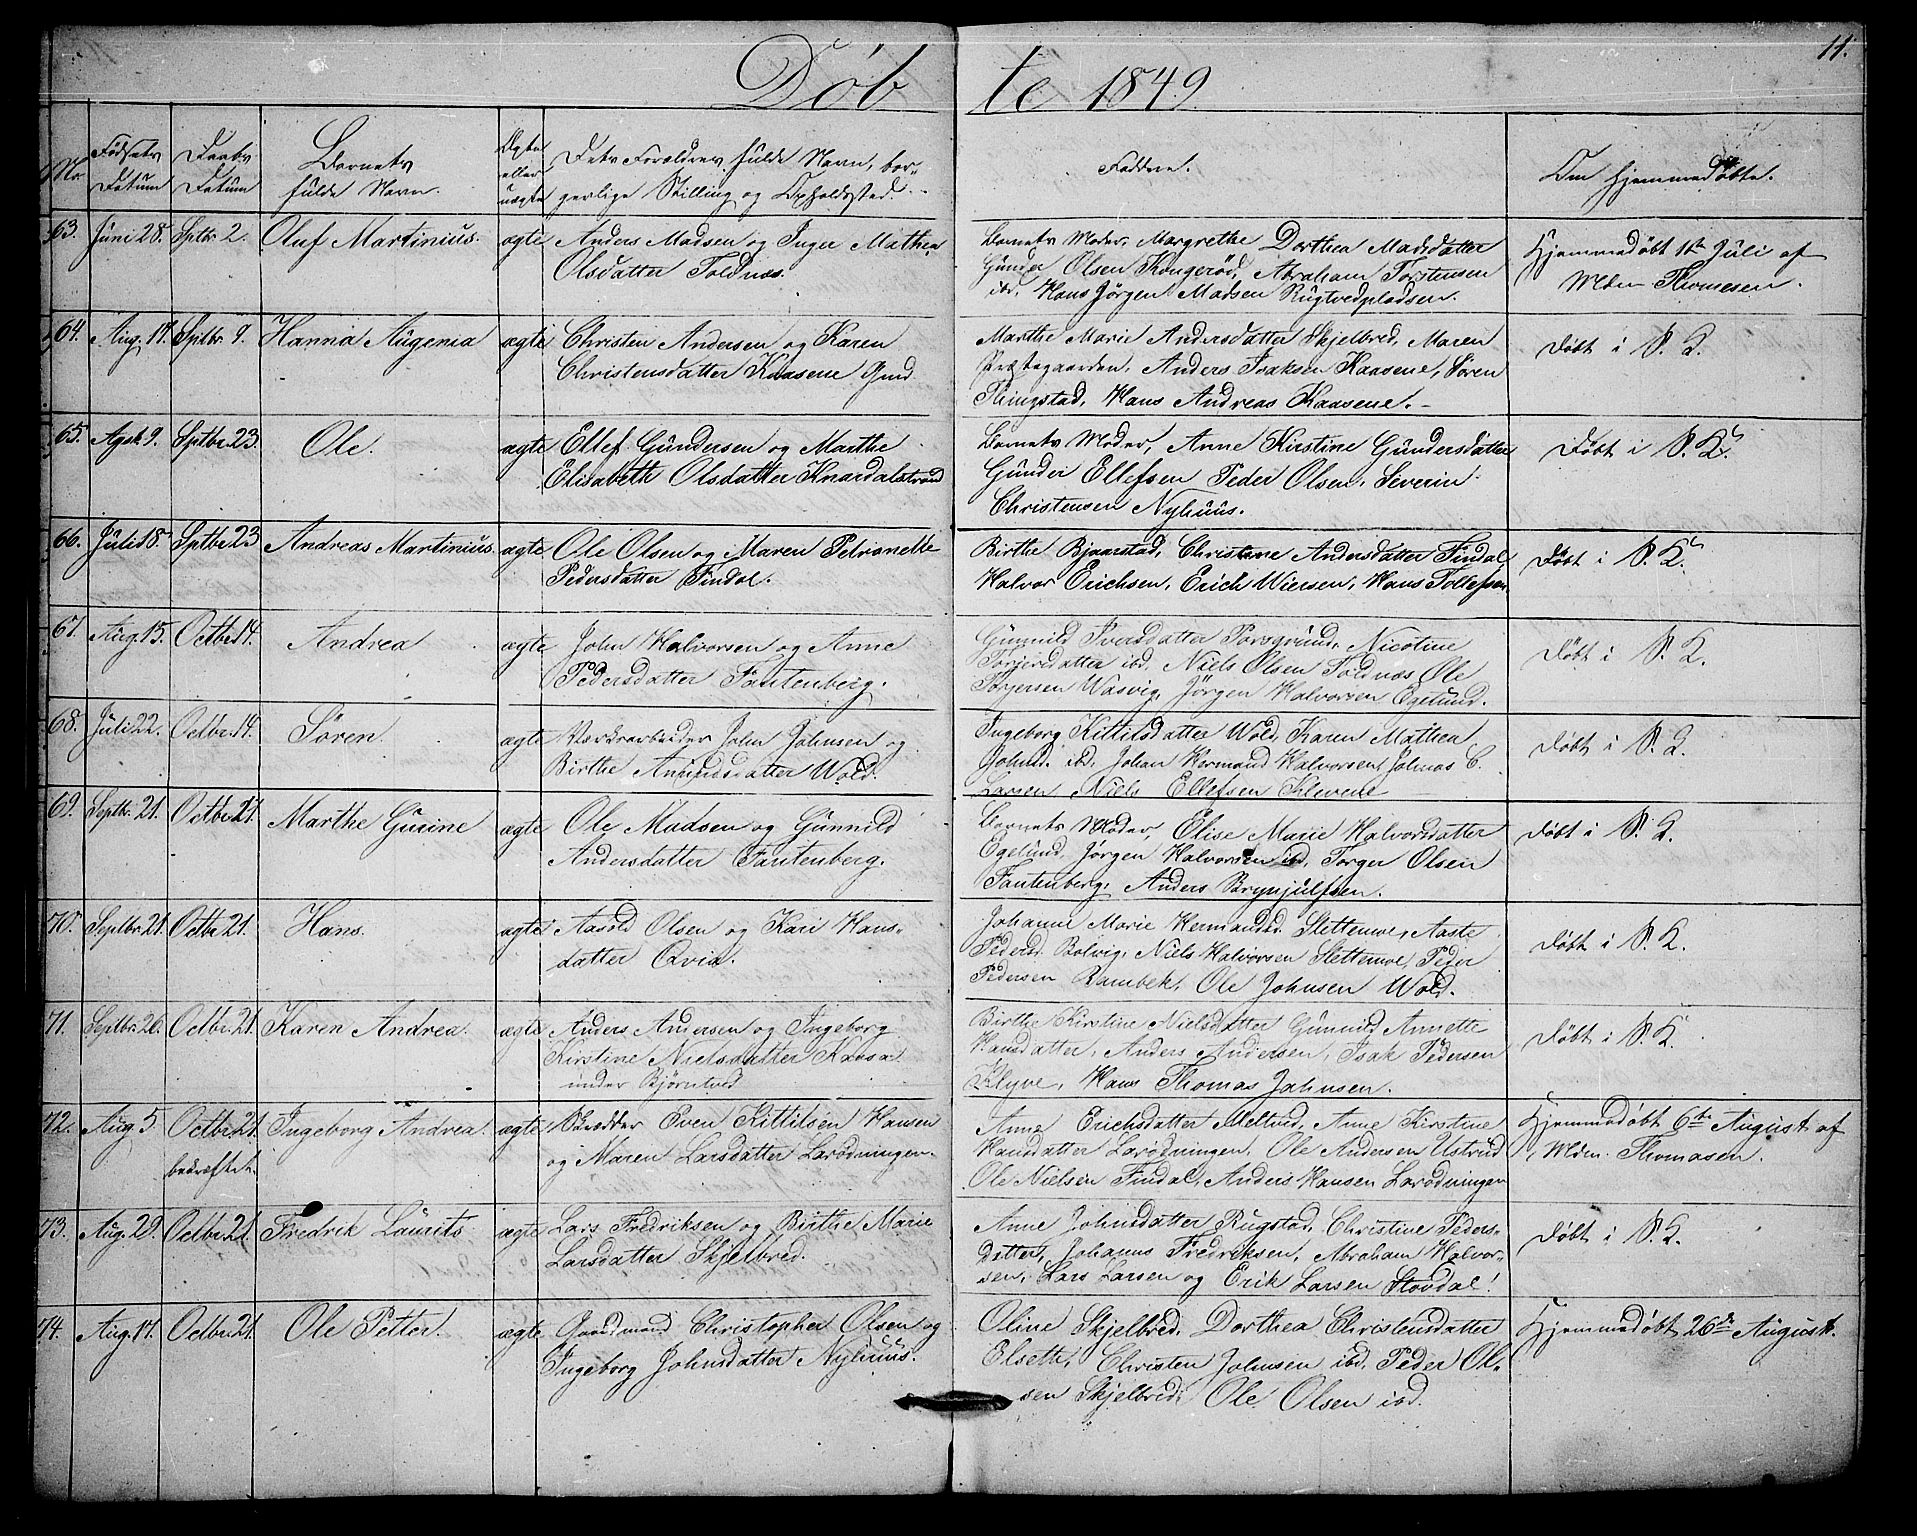 Døbte 1849
11.
No.
Fødsels Datum
Daabs Datum
Barnets fulde Navn.
Ægte eller uægte
Dets Forældres fulde Navn, borgerlige Stilling og Opholdssted.
Faddere.
Om hjemmedøbte.
63. Juni 28. Sptbr. 2. Oluf Martinius. ægte
Anders Madsen og Inger Mathea
Olsdatter Toldnæs.
Barnets Moder, Margrethe Dorthea Madsdatter
Gunder Olsen Kongerød, Abraham Torstensen
ibd. Hans Jörgen Madsen Rugtvedpladsen.
Hjemmedøbt 11te Juli af
Mdm Thomesen.
64. Aug. 17. Sptbr. 9. Hanna Augenia ægte
Christen Andersen og Karen
Christensdatter Kaasene Gmd.
Marthe Marie Andersdatter Skjelbred, Maren
Præstegaarden, Anders Isaksen Kaasene, Søren
Flingstad, Hans Andreas Kaasene.
Døbt i P. K.
65. Agst. 9. Sptbr. 23. Ole. ægte
Ellef Gundersen og Marthe
Elisabeth Olsdatter Knardalstrand
Barnets Moder, Anne Kirstine Gundersdatter
Gunder Ellefsen Peder Olsen, Severin
Christensen Nyhuus.
Døbt i P. K.
66. Juli 18. Sptbr. 23 Andreas Martinius. ægte
Ole Olsen og Maren Petronelle
Pedersdatter Findal.
Birthe Bjaarstad, Christine Andersdatter Findal
Halvor Erichsen, Erich Wiersen, Hans Tollefsen.
Døbt i P. K.
67. Aug. 15. Octbr. 14. Andrea ægte
John Halvorsen og Anne
Pedersdatter Fantenberg.
Gunnild Iversdatter Porsgrund, Nicoline
Torjersdatter ibd. Niels Olsen Toldnæs Ole
Torjersen Wasvig, Jörgen Halvorsen Egelund.
Døbt i P. K.
68. Juli 22. Octbr. 14. Søren. ægte
Værksarbeider John Johnsen og
Birthe Amundsdatter Wold.
Ingeborg Kittilsdatter Wold Karen Mathea
Johnsd. ibd. Johan Hermand Halvorsen, Johnas C.
Larsen, Niels Ellefsen Klevene
Døbt i P. K.
69. Septbr. 21. Octbr. 21. Marthe Gurine ægte
Ole Madsen og Gunnild
Andersdatter Fantenberg.
Barnets Moder, Elise Marie Halvorsdatter
Egelund, Jörgen Halvorsen ibd. Torger Olsen
Fantenberg, Anders Brynjulfsen.
Døbt i P. K.
70. Septbr. 21. Octbr. 21. Hans. ægte
Aasold Olsen og Kari Hans-
datter Qvia.
Johanne Marie Hermandsd. Slettemoe, Aaste
Pedersd. Bolvig, Niels Halvorsen Slettemoe, Peder
Pedersen Rambek, Ole Johnsen Wold.
Døbt i P. K.
71. Septbr. 26. Octbr. 21. Karen Andrea. ægte
Anders Andersen og Ingeborg
Kirstine Nielsdatter Kaasa
under Bjørntved
Birthe Kirstine Nielsdatter Gunnild Annette
Hansdatter, Anders Andersen, Isak Pedersen
Klyve, Hans Thomas Johnsen.
Døbt i P. K.
72. Aug. 5. Octbr. 21. bekræftet. Ingeborg Andrea. ægte
Skrædder Even Kittilsen Hansen
og Maren Larsdatter Larødningen
Anne Erichsdatter Meltved, Anne Kirstine
Hansdatter Larødningen, Ole Andersen Ustrud
Ole Nielsen Findal, Anders Hansen Larødningen
Hjemmedøbt 6te August af
Mdm. Thomasen.
73. Aug. 29. Octbr. 21. Fredrik Laurits ægte
Lars Fredriksen og Birthe Marie
Larsdatter Skjelbred.
Anne Johnsdatter Rugstad, Christine Peders-
datter, Johanns Fredriksen, Abraham Halvor-
sen, Lars Larsen og Erik Larsen Stovdal!
Døbt i P. K.
74. Aug. 17. Octbr. 21. Ole Petter. ægte
Gaardmand Christopher Olsen og
Ingeborg Johnsdatter Nyhuus.
Oline Skjelbred, Dorthea Christensdatter
Elseth, Christen Johnsen ibd. Peder Ol-
sen Skjelbred, Ole Olsen ibd.
Hjemmedøbt 26de August.